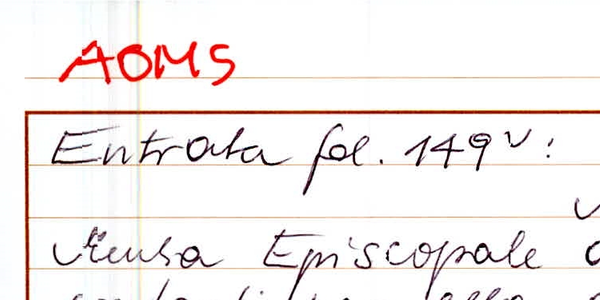 AOMS
Entrata fol. 149v:
Mensa Episcopale